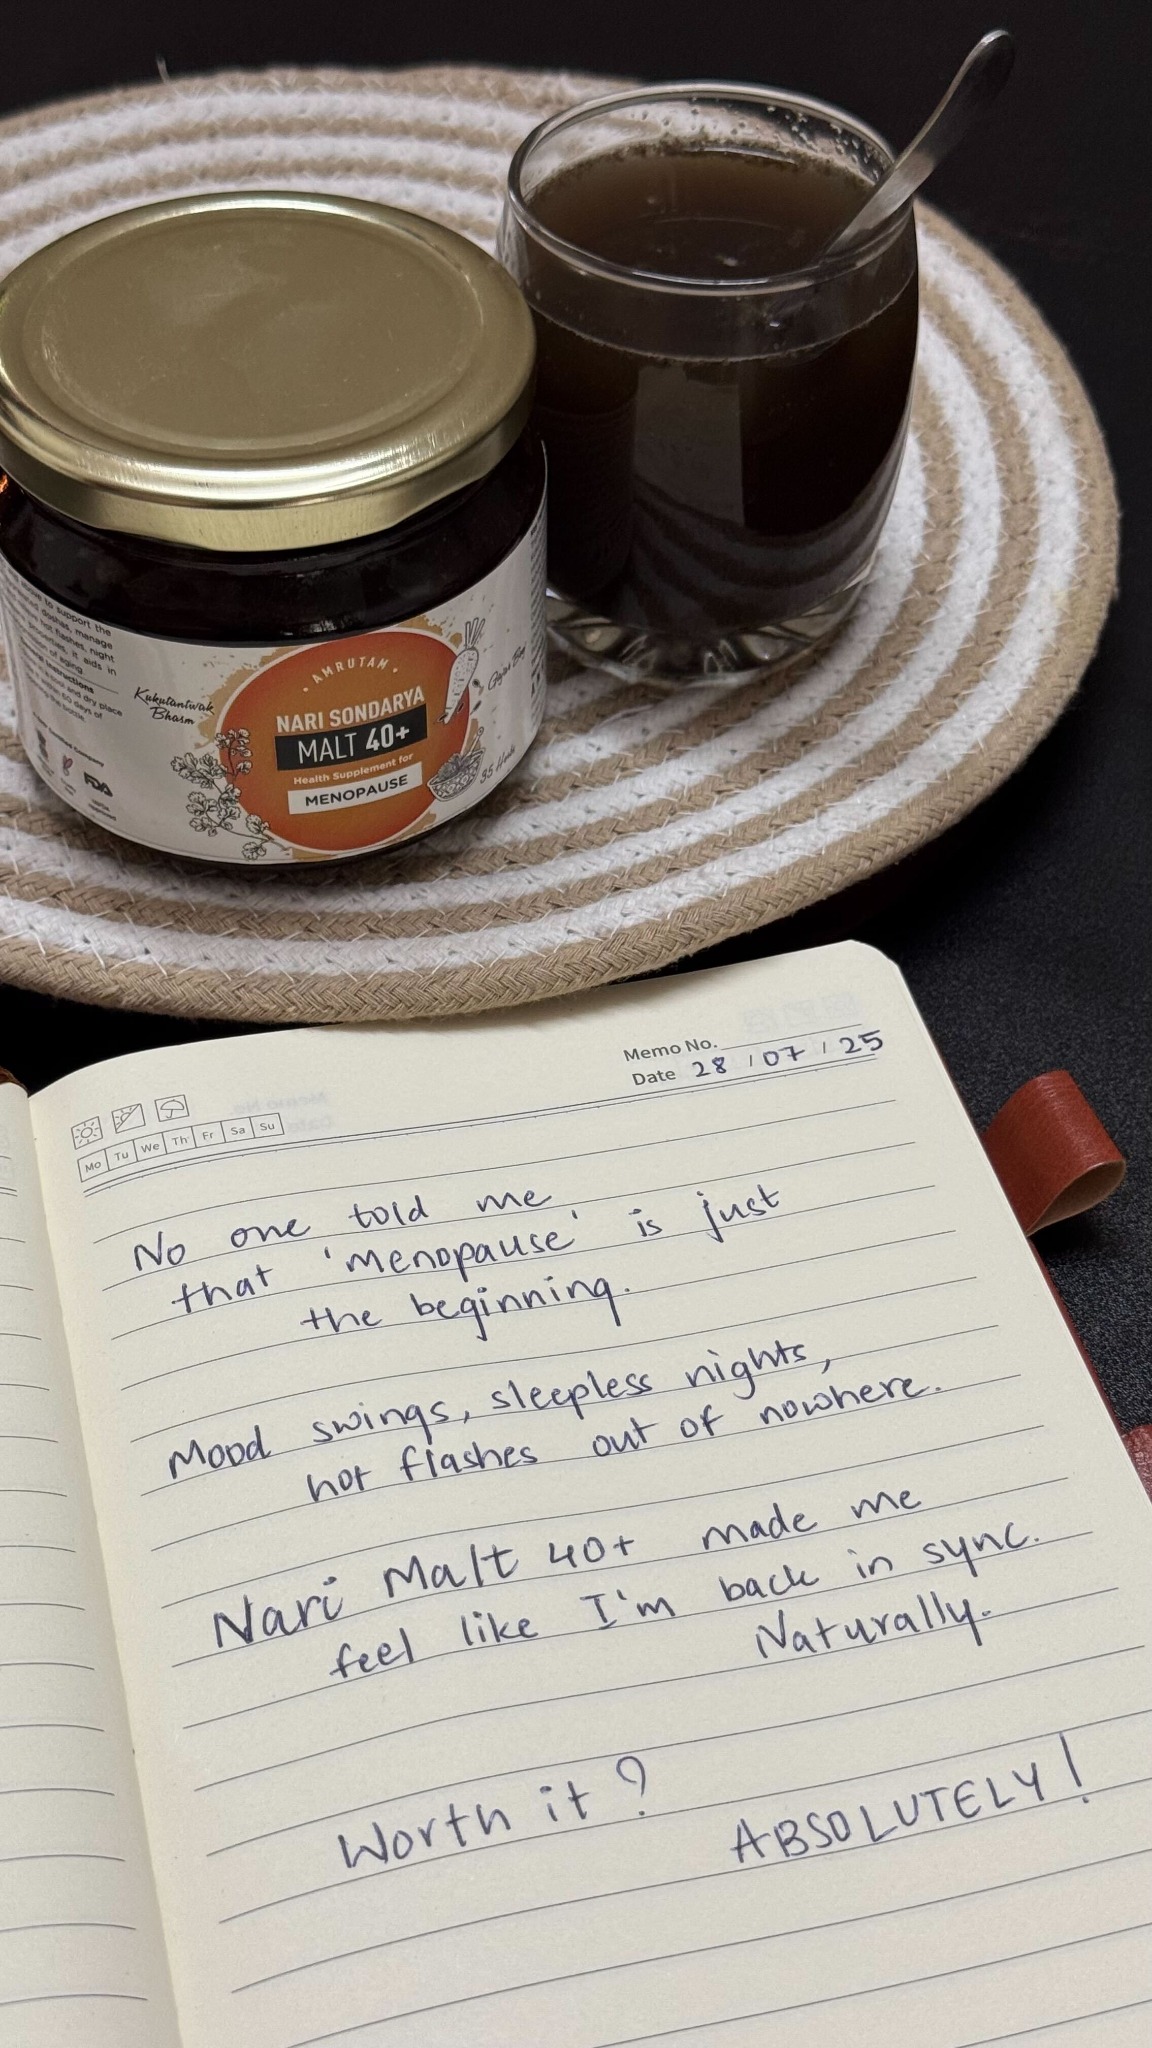 AMRUTAM
NARI SONDARYA
MALT 40+
Health Supplement for
MENOPAUSE
Kukutantwak
Bhasm
to support the
doshas, manage
hot flashes, night
it aids in
of aging
dry place
60 days of
Company
FDA
35 Herbs
Memo No.
Date 28 / 07 / 25
Mo Tu We Th Fr Sa Su
No one told me
that 'menopause' is just
the beginning.
Mood swings, sleepless nights,
hot flashes out of nowhere.
Nari Malt 40+ made me
feel like I'm back in sync.
Naturally.
Worth it?
ABSOLUTELY!